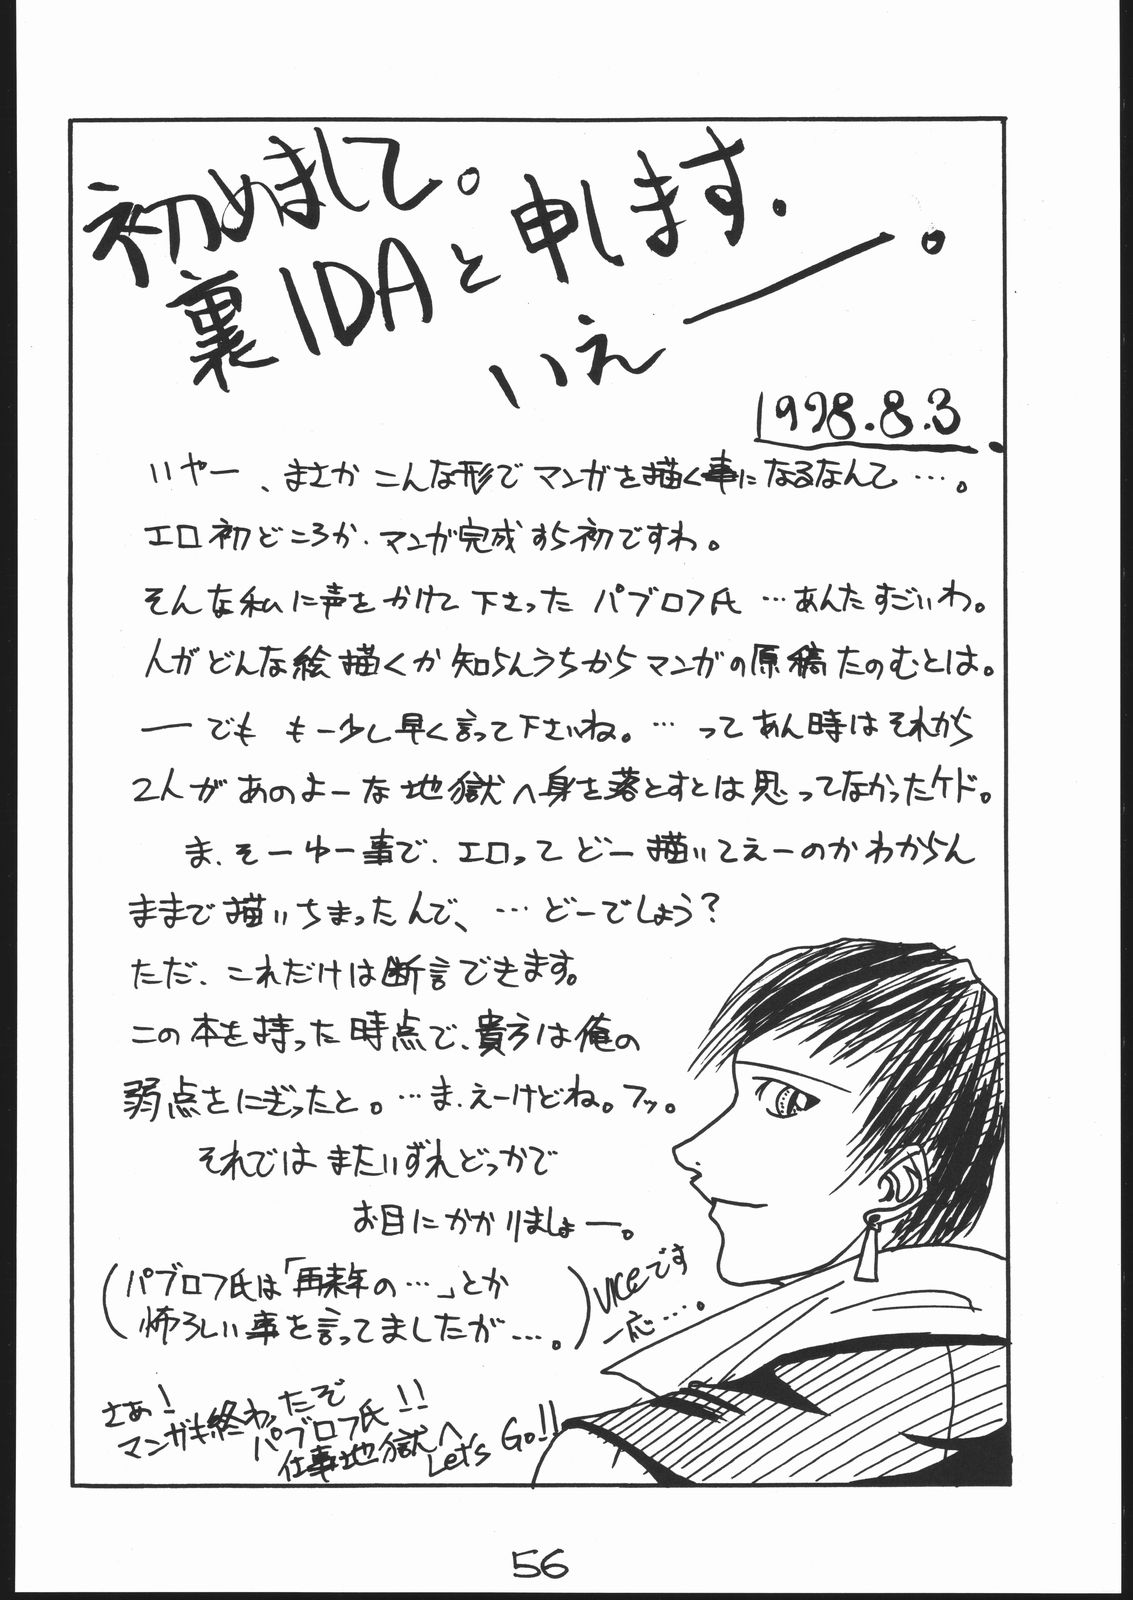 初めまして。
裏IDAと申します.
いえー。
1998.8.3.
いやー、まさかこんな形でマンガを描く事になるなんて…。
エロ初どころか、マンガ完成すら初ですわ。
そんな私に声をかけて下さったパブロフ氏…あんたすごいわ。
人がどんな絵描くか知らんうちからマンガの原稿たのむとは。
―でも も一少し早く言って下さいね。…ってあん時はそれから
2人があのよーな地獄へ身を落とすとは思ってなかったケド。
ま、そーゆー事で、エロってどー描いてえーのかわからん
ままで描いちまったんで、…どーでしょう?
ただ、これだけは断言できます。
この本を持った時点で、貴方は俺の
弱点をにぎったと。…ま、えーけどね。フッ。
それではまたいずれどっかで
お目にかかりましょー。
(パブロフ氏は「再来年の…」とか
怖ろしい事を言ってましたが…。)
VICEです
一応…。
さぁ!
マンガも終わったぞ
パブロフ氏!!
仕事地獄へ
Let's Go!!
56